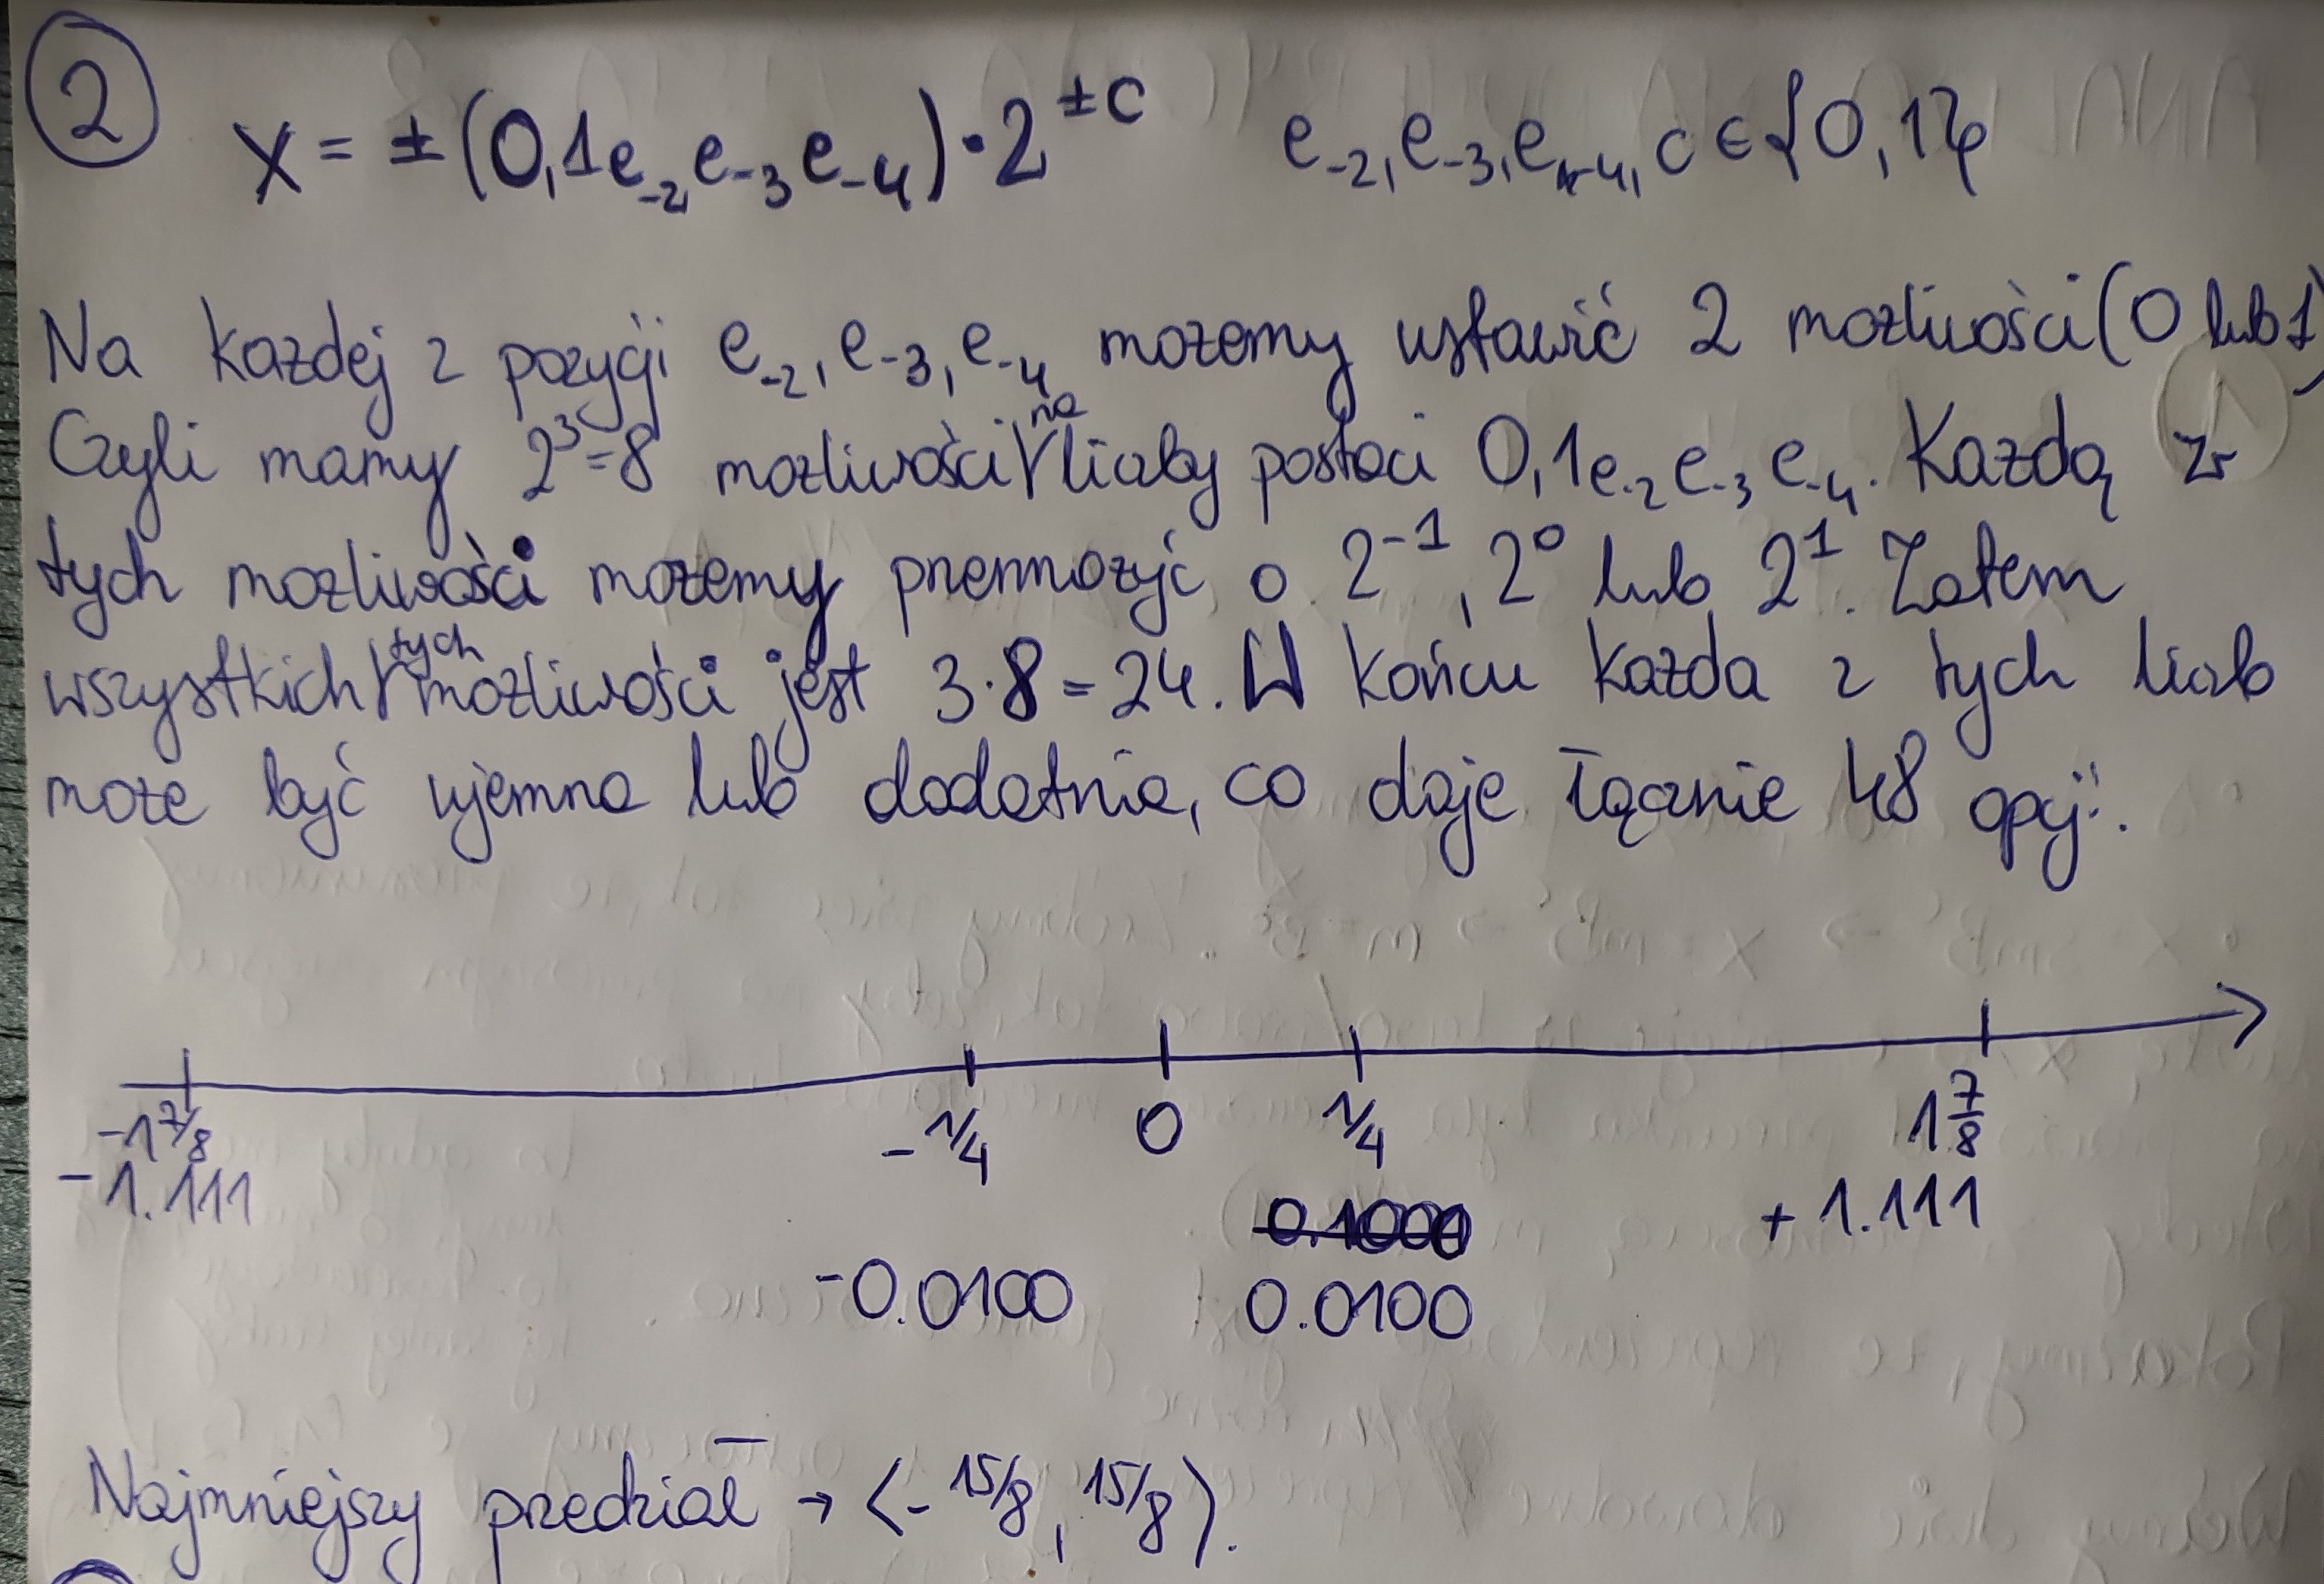 2
x = ± (0,1e₋₂e₋₃e₋₄) · 2^±c e₋₂, e₋₃, e₋₄, c ∈ {0,1}
Na każdej z pozycji e₋₂, e₋₃, e₋₄ możemy ustawić 2 możliwości (0 lub 1)
Czyli mamy 2³=8 możliwości na liczby postaci 0,1e₋₂e₋₃e₋₄. Każdą z
tych możliwości możemy przemnożyć o 2⁻¹, 2⁰ lub 2¹. Zatem
wszystkich tych możliwości jest 3·8=24. W końcu każda z tych liczb
może być ujemna lub dodatnia, co daje łącznie 48 opcji.
-1 7/8 -1/4 0 1/4 1 7/8
-1.111 +1.111
-0.0100 0.0100
Najmniejszy przedział → <-15/8, 15/8>.